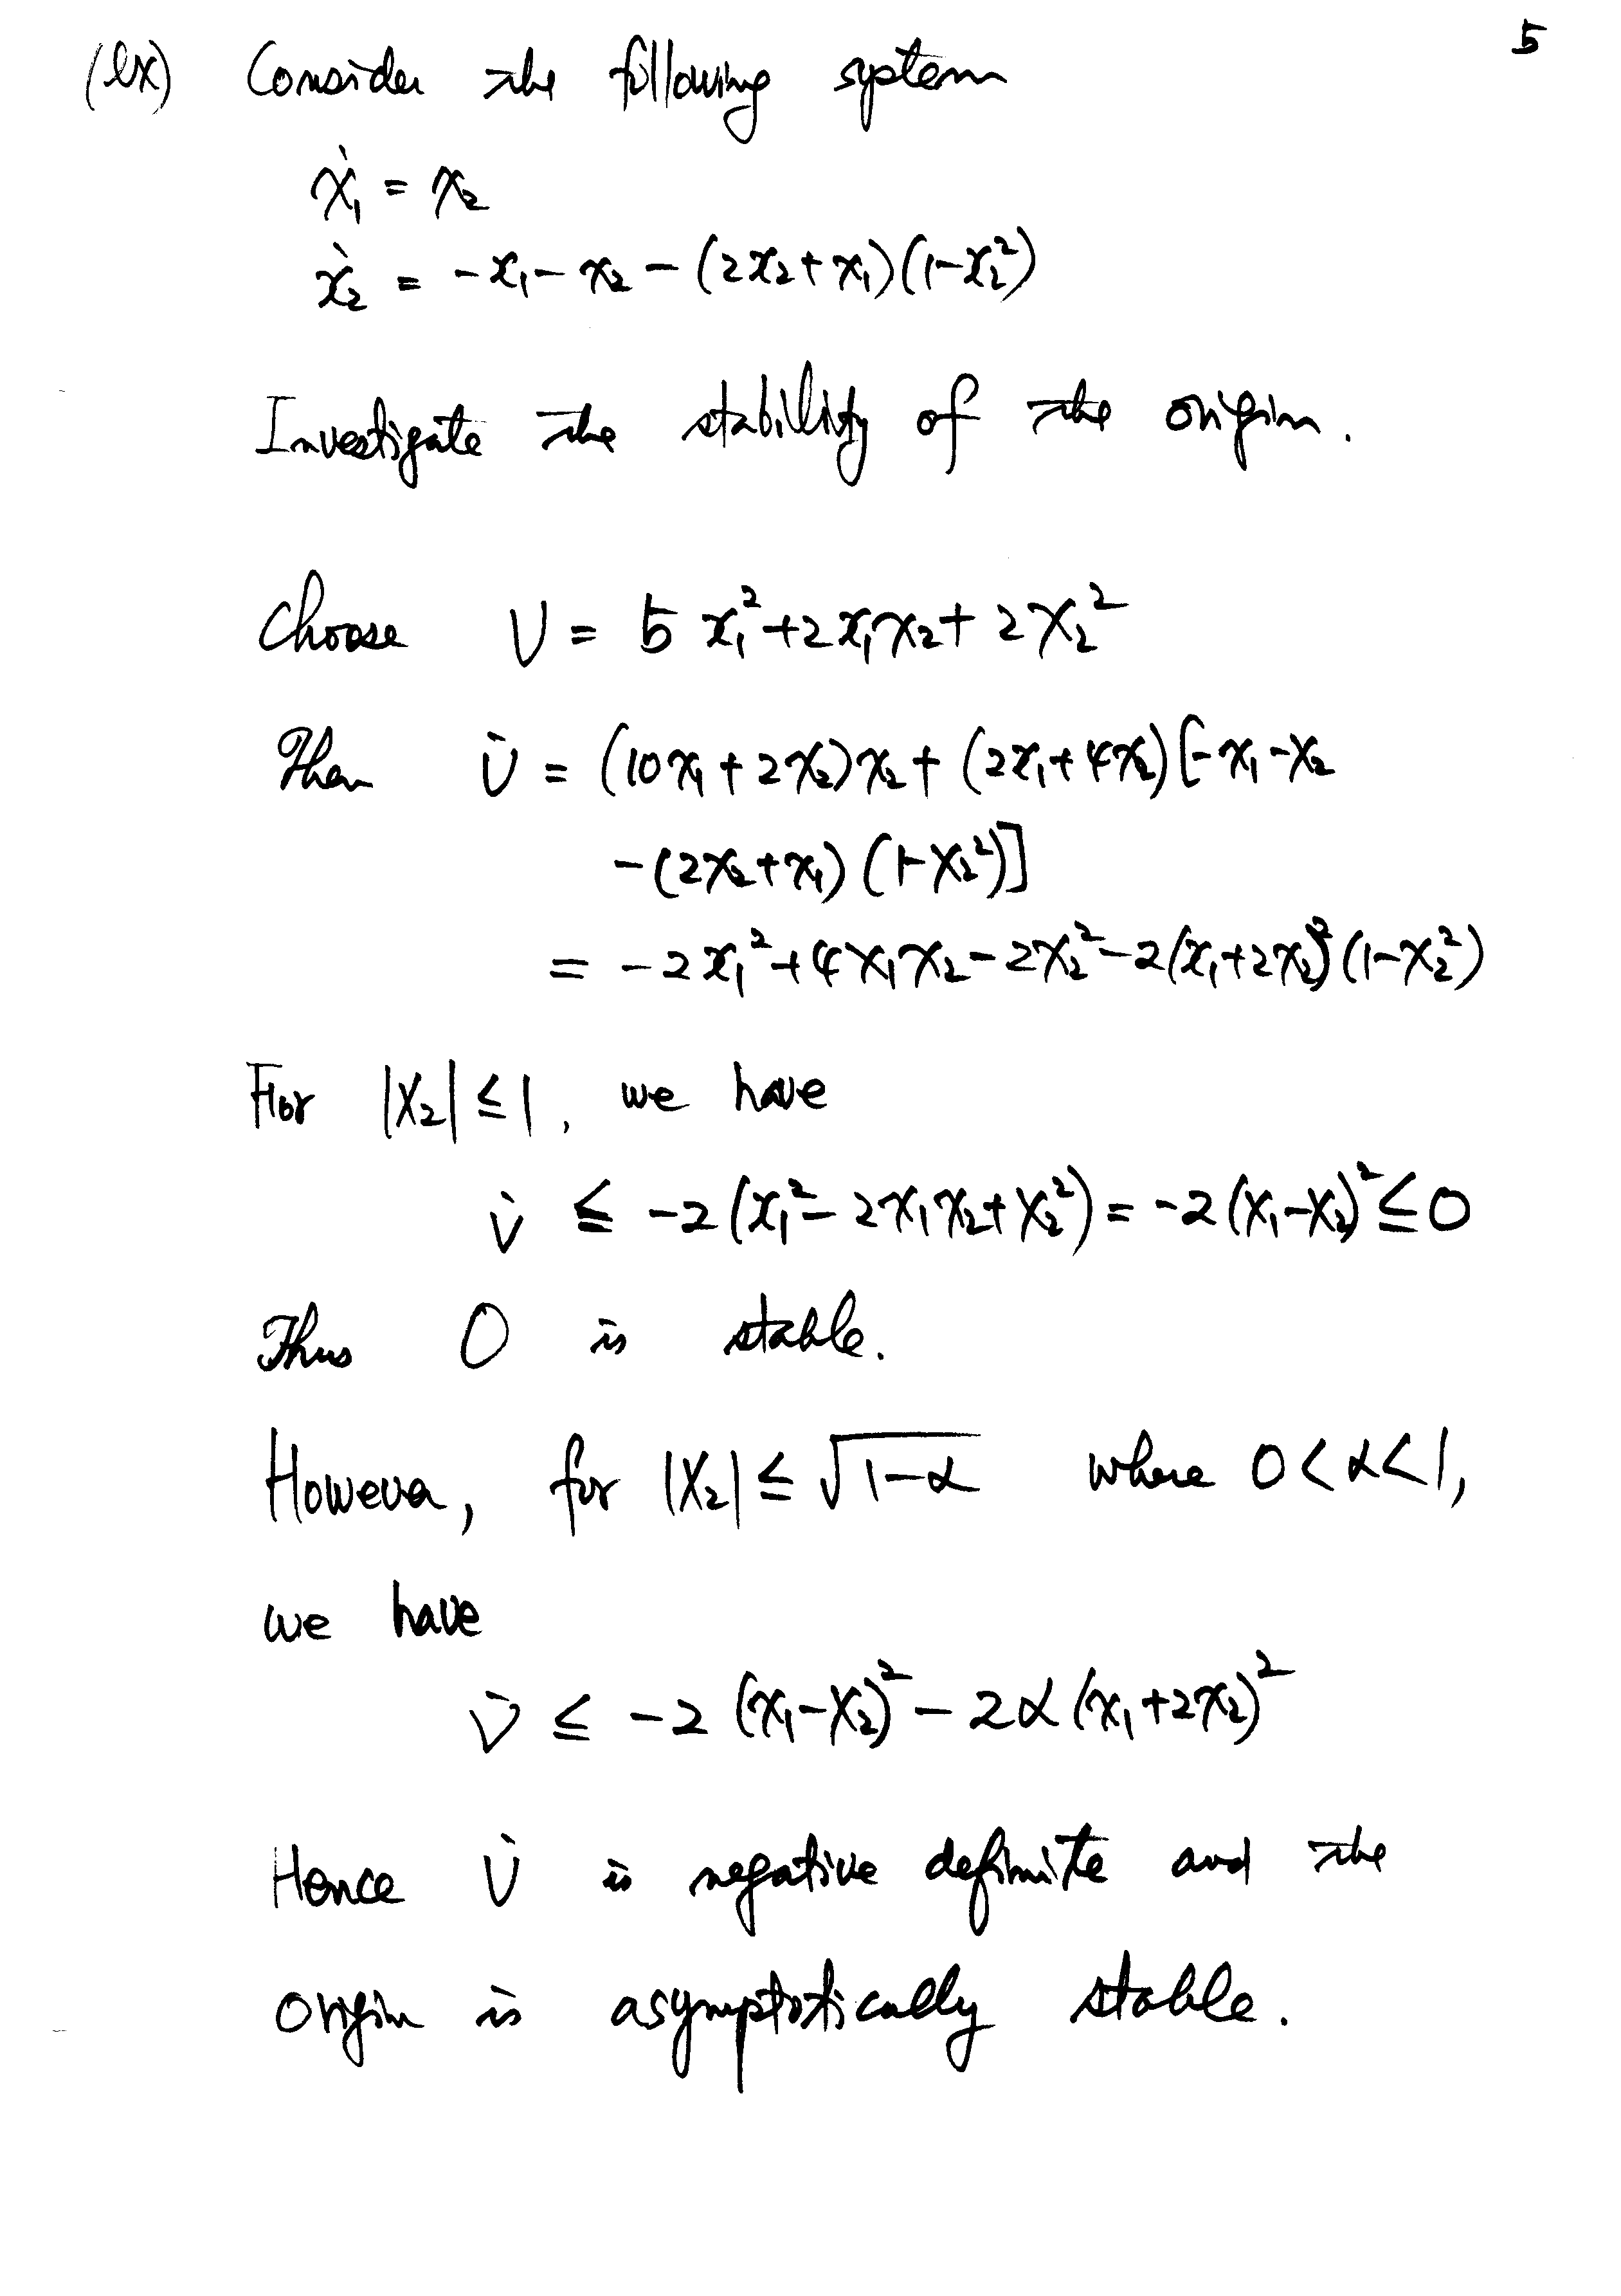 5
(ex) Consider the following system
ẋ₁ = x₂
ẋ₂ = -x₁ - x₂ - (2x₂ + x₁)(1-x₂²)
Investigate the stability of the origin.
Choose V = 5x₁² + 2x₁x₂ + 2x₂²
Then V̇ = (10x₁ + 2x₂)x₂ + (2x₁ + 4x₂)[-x₁ - x₂
-(2x₂ + x₁)(1-x₂²)]
= -2x₁² + 4x₁x₂ - 2x₂² - 2(x₁ + 2x₂)²(1-x₂²)
For |x₂| ≤ 1, we have
V̇ ≤ -2(x₁² - 2x₁x₂ + x₂²) = -2(x₁-x₂)² ≤ 0
Thus 0 is stable.
However, for |x₂| ≤ √(1-α) where 0 < α < 1,
we have
V̇ ≤ -2(x₁-x₂)² - 2α(x₁+2x₂)²
Hence V̇ is negative definite and the
origin is asymptotically stable.